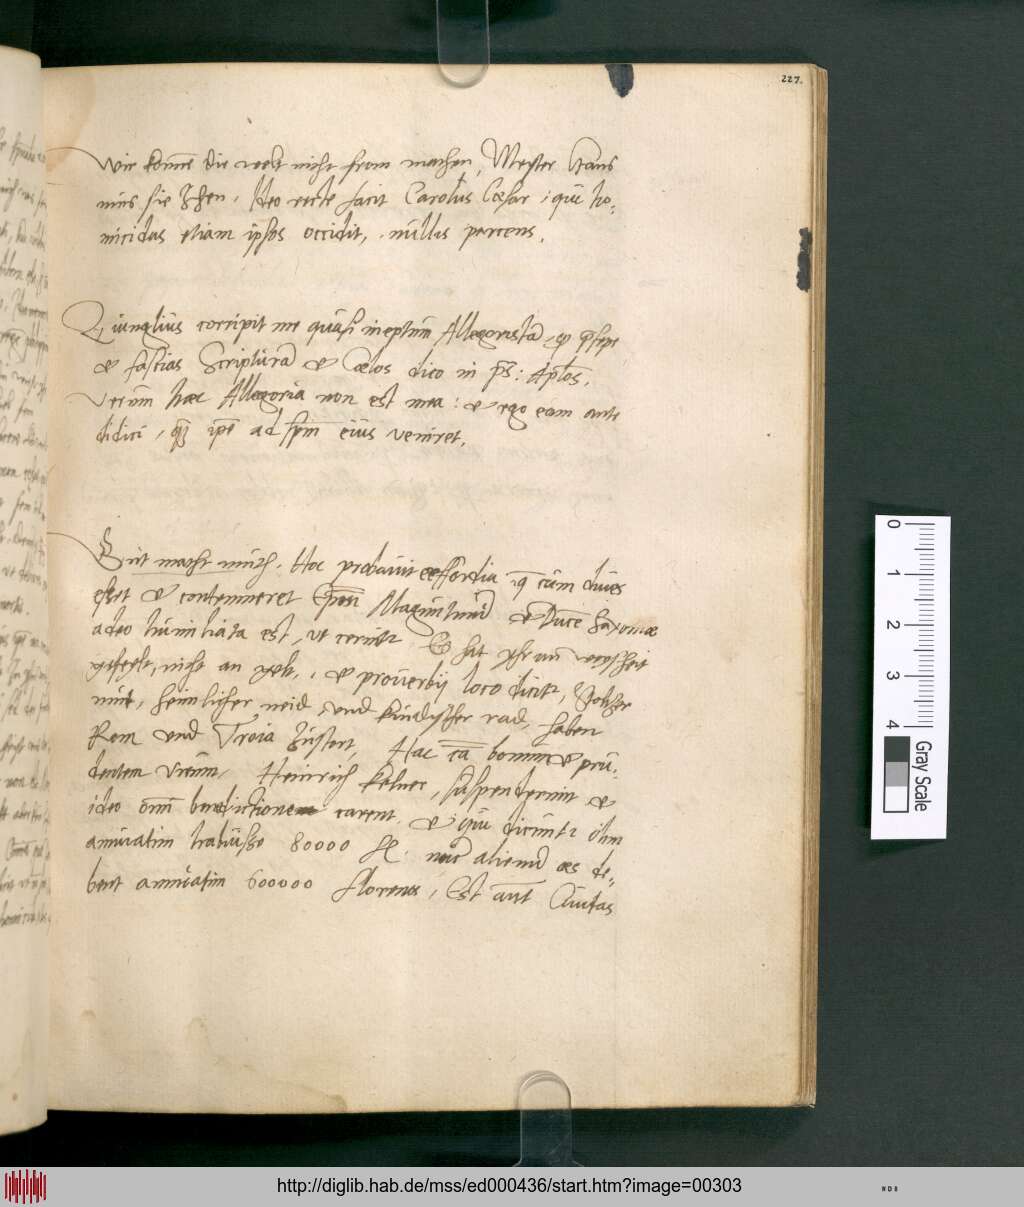 227.
wir konnē die welt nicht from machen, Meyster Hans
mus sie thun. Ideo recte facit Carolus Cæsar, qui ho:
micidas etiam ipsos occidit, nullis parcens.
Zuinglius corripit me quasi ineptum Allegoristā, qp p̄sepe
et fascias Scripturā et Cælos dico in ps: Aplos.
Verum hæc Allegoria non est mea: et ego eam ante
didici, qz ipē ad spm eius veniret.
Gut macht muth. Hoc probavit Erffordia, q cum dives
esset et contemneret Ep̄m Maguntinū et Ducē Saxoniæ
adeo humiliata est, ut cernitr Es hat yhr an weysheit
gefeylt, nicht an gelt, et proverbij loco dicitr, Stoltzer
mut, heimlicher neid, und kindischer rad, haben
Rom und Troia zustort, Hac cā bonum et pru:
dentem virum, Heinrich Kelner, suspenderunt et
ideo omni benedictione carent. et qui dicuntr olim
annuatim habuisse 80000 fl. nūc alienū æs de:
bent annuatim 600000 florenos, Est aūt Civitas
0
1
2
3
4
Gray Scale
http://diglib.hab.de/mss/ed000436/start.htm?image=00303